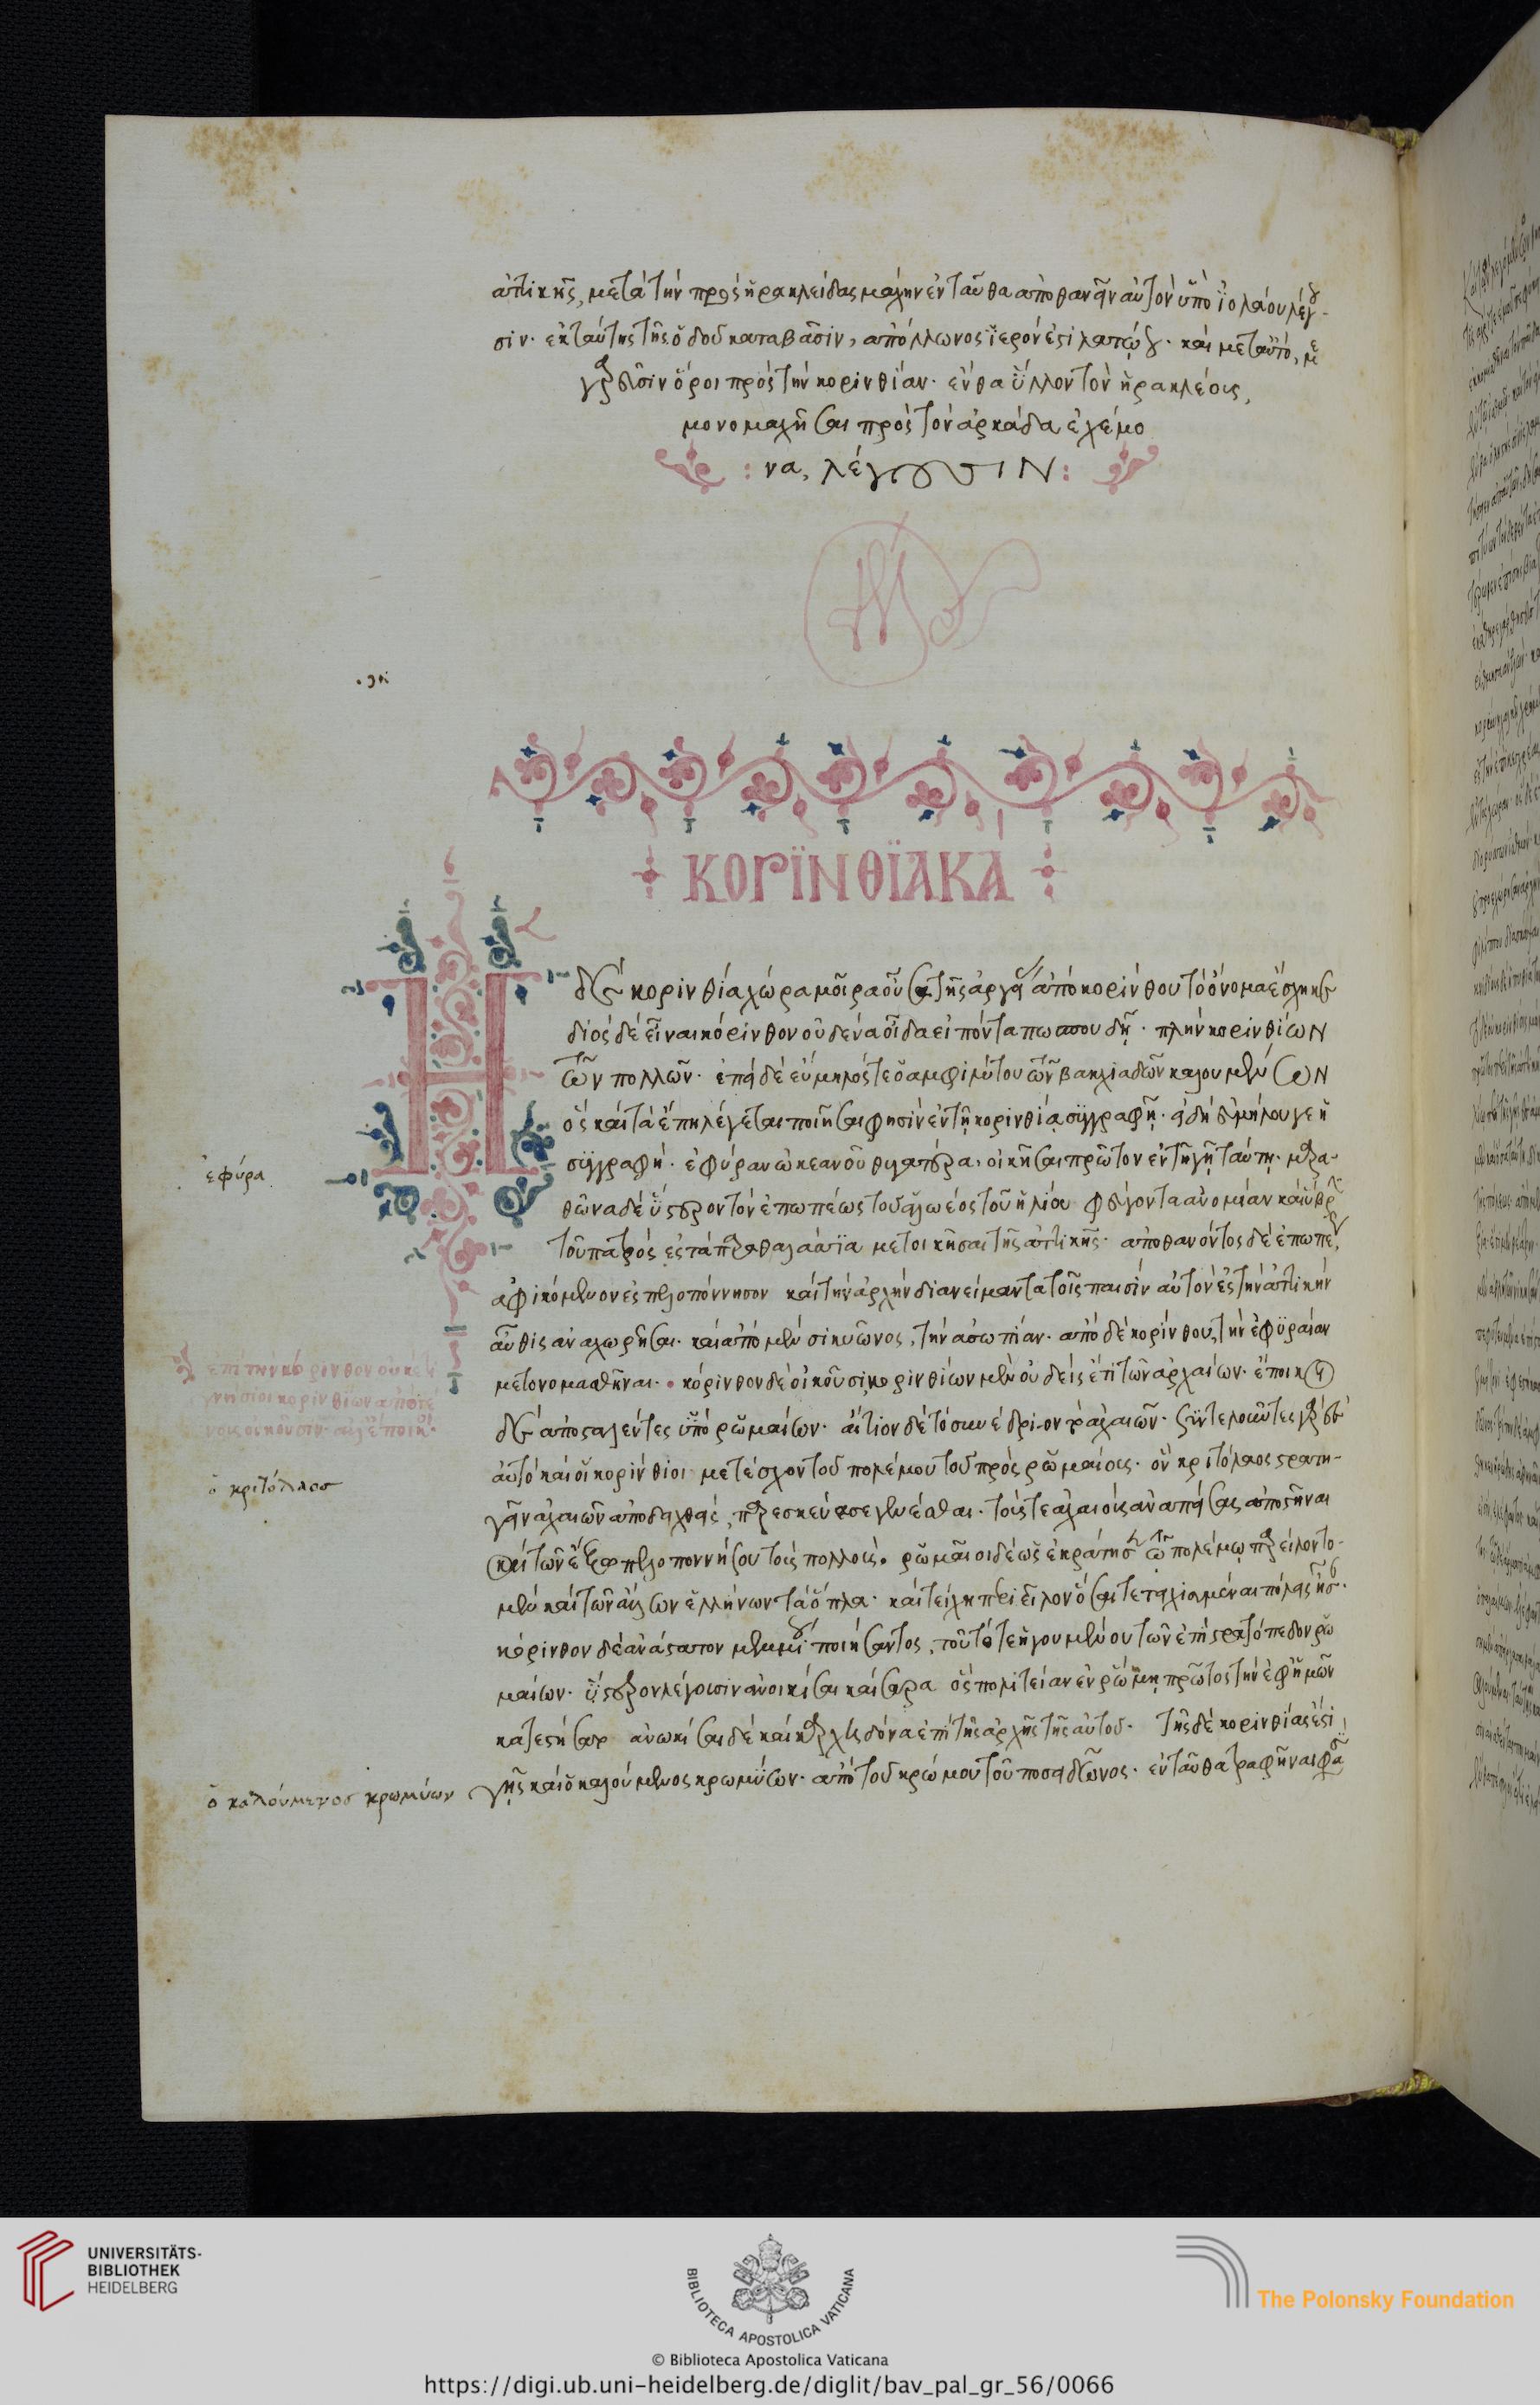 ἀττικῆς, μετὰ τὴν πρὸς ἡρακλείδας μάχην ἐνταῦθα ἀποθανεῖν αὐτὸν ὑπὸ ἰολάου λέγου
σιν· ἐκ ταύτης τῆς ὁδοῦ καταβᾶσιν, ἀπόλλωνος ἱερόν ἐστι λατῴου· καὶ μετ' αὐτὸ, με
γαρεῦσιν ὅροι πρὸς τὴν κορινθίαν· ἔνθα ὕλλον τὸν ἡρακλέους,
μονομαχῆσαι πρὸς τὸν ἀρκάδα ἐχεμο
: να, λέγουσιν :
ΚΟΡΪΝΘΪΑΚΆ
Η
δὲ κορινθία χώρα μοῖρα οὖσα τῆς ἀργείας ἀπὸ κορίνθου τὸ ὄνομα ἔσχηκε
διὸς δὲ εἶναι κόρινθον οὐδένα οἶδα εἰπόντα πω σπουδῇ· πλὴν κορινθίων
τῶν πολλῶν· ἐπεὶ δὲ εὔμηλός τε ὁ ἀμφιλύτου τῶν βακχιαδῶν καλουμένων
ὃς καὶ τὰ ἔπη λέγεται ποιῆσαι φησὶν ἐν τῇ κορινθίᾳ συγγραφῇ· εἰ δὴ εὐμήλου γε ἡ
συγγραφή· ἐφύραν ὠκεανοῦ θυγατέρα, οἰκῆσαι πρῶτον ἐν τῇ γῇ ταύτῃ· μαρα
θῶνα δὲ ὕστερον τὸν ἐπωπέως τοῦ ἀλωέος τοῦ ἡλίου φεύγοντα ἀνομίαν καὶ ὕβριν
τοῦ πατρὸς ἐς τὰ παραθαλάσσια μετοικῆσαι τῆς ἀττικῆς· ἀποθανόντος δὲ ἐπωπέως,
ἀφικόμενον ἐς πελοπόννησον καὶ τὴν ἀρχὴν διανείμαντα τοῖς παισὶν αὐτὸν ἐς τὴν ἀττικὴν
αὖθις ἀναχωρῆσαι· καὶ ἀπὸ μὲν σικυῶνος, τὴν ἀσωπίαν· ἀπὸ δὲ κορίνθου, τὴν ἐφυραίαν
μετονομασθῆναι· κόρινθον δὲ οἰκοῦσι κορινθίων μὲν οὐδεὶς ἔτι τῶν ἀρχαίων· ἔποικοι
δὲ ἀποσταλέντες ὑπὸ ῥωμαίων· αἴτιον δὲ τὸ συνέδριον τὸ ἀχαιῶν· συντελοῦντες γὰρ ἐς
αὐτὸ καὶ οἱ κορίνθιοι μετέσχον τοῦ πολέμου τοῦ πρὸς ῥωμαίους· ὃν κριτόλαος στρατη
γεῖν ἀχαιῶν ἀποδειχθεὶς, παρεσκεύασε γενέσθαι· τούς τε ἀχαιοὺς ἀναπείσας ἀποστῆναι
καὶ τῶν ἔξω πελοποννήσου τοὺς πολλούς. ῥωμαῖοι δὲ ὡς ἐκράτησαν τῷ πολέμῳ παρείλοντο
μὲν καὶ τῶν ἄλλων ἑλλήνων τὰ ὅπλα· καὶ τείχη περιεῖλον ὅσαι τετειχισμέναι πόλεις ἦσαν·
κόρινθον δὲ ἀνάστατον μομμίου ποιήσαντος, τοῦ τότε ἡγουμένου τῶν ἐπὶ στρατόπεδον ῥω
μαίων· ὕστερον λέγουσιν ἀνοικίσαι καίσαρα ὃς πολιτείαν ἐν ῥώμῃ πρῶτος τὴν ἐφ' ἡμῶν
κατεστήσατο ἀνωκίσαι δὲ καὶ καρχηδόνα ἐπὶ τῆς ἀρχῆς τῆς αὐτοῦ· τῆς δὲ κορινθίας ἐστὶ
γῆς καὶ ὁ καλούμενος κρωμύων· ἀπὸ τοῦ κρώμου τοῦ ποσειδῶνος· ἐνταῦθα τραφῆναι φασι
ἐφύρα
ὁ κριτόλαοσ
ὁ καλούμενοσ κρωμύων
UNIVERSITÄTS-
BIBLIOTHEK
HEIDELBERG
BIBLIOTECA APOSTOLICA VATICANA
The Polonsky Foundation
© Biblioteca Apostolica Vaticana
https://digi.ub.uni-heidelberg.de/diglit/bav_pal_gr_56/0066